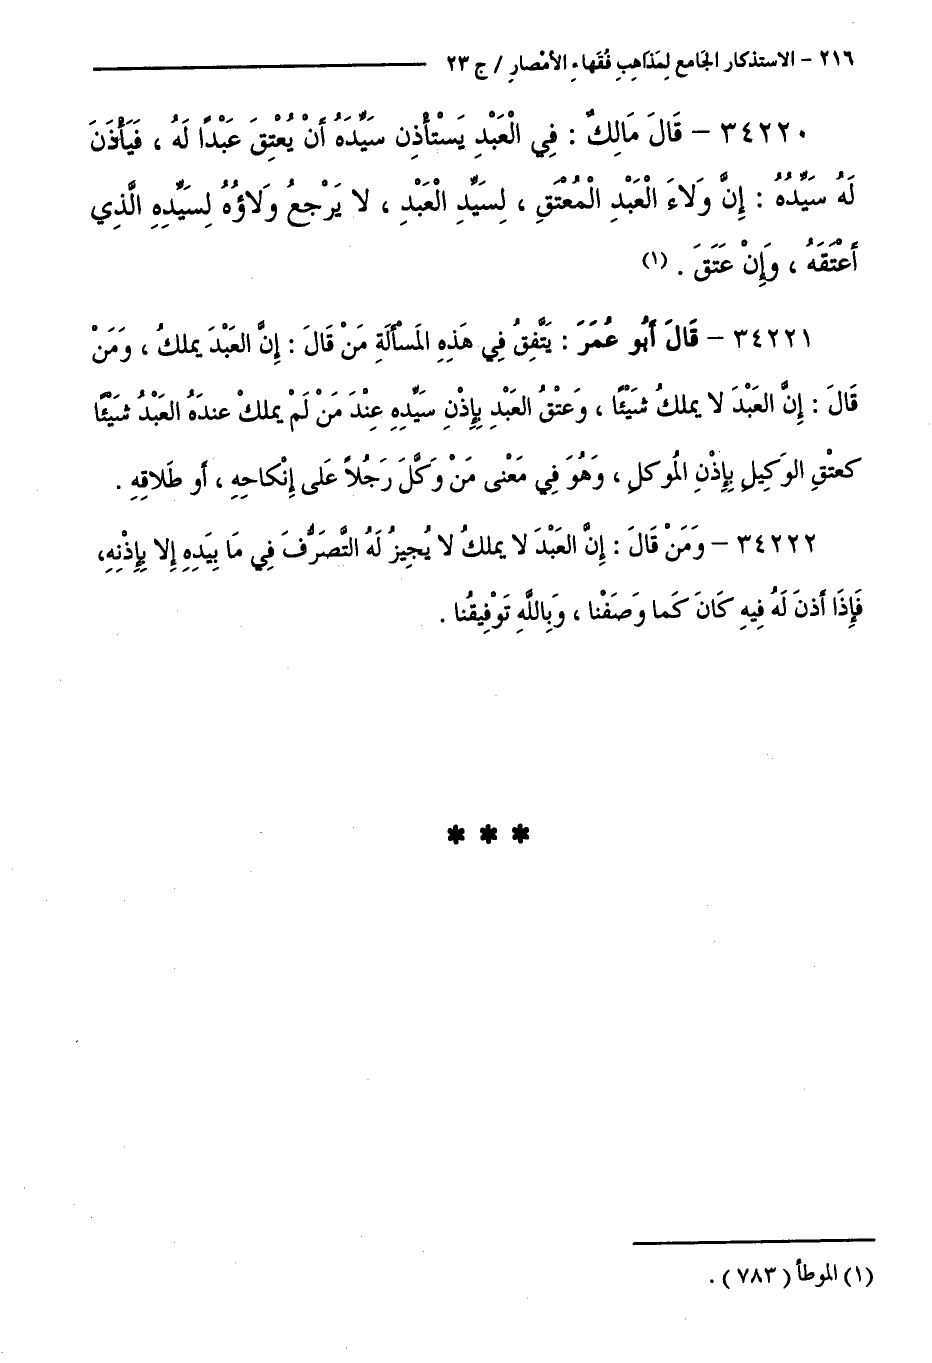 ٢١٦ – الاستذكار الجَامع لِمَذَاهِبِ فُقَهاءِ الأمْصارِ / ج ٢٣
٣٤٢٢٠ – قَالَ مَالِكٌ : فِي الْعَبْدِ يَسْتَأْذِن سَيِّدَهُ أَنْ يُعْتِقَ عَبْدًا لَهُ ، فَيَأْذَنَ
لَهُ سَيِّدُهُ : إِنَّ وَلَاءَ الْعَبْدِ الْمُعْتَقِ ، لِسَيِّدِ الْعَبْدِ ، لا يَرْجعُ وَلاؤُهُ لِسَيِّدِهِ الَّذِي
أَعْتَقَهُ ، وَإِنْ عَتَقَ . (١)
٣٤٢٢١ – قَالَ أَبُو عُمَرَ : يَتَّفِقُ فِي هَذِهِ المَسْأَلَةِ مَنْ قَالَ : إِنَّ العَبْدَ يملكُ ، وَمَنْ
قَالَ : إِنَّ العَبْدَ لا يملكُ شَيْئًا ، وَعتْقُ العَبْدِ بِإِذْنِ سَيِّدِهِ عِنْدَ مَنْ لَمْ يملكْ عندَهُ العَبْدُ شَيْئًا
كعتْقِ الوَكِيلِ بِإِذْنِ المُوكلِ ، وَهُوَ فِي مَعْنى مَنْ وَكَّلَ رَجُلاً عَلى إِنْكاحِهِ ، أو طَلاقِهِ .
٣٤٢٢٢ – وَمَنْ قَالَ : إِنَّ العَبْدَ لا يملكُ لا يُجِيزُ لَهُ التَّصَرُّفَ فِي مَا بِيَدِهِ إِلا بِإِذْنِهِ،
فَإِذَا أذنَ لَهُ فِيهِ كَانَ كَما وَصَفْنا ، وَبِاللَّهِ تَوْفِيقُنا .
* * *
(١) الموطأ (٧٨٣) .